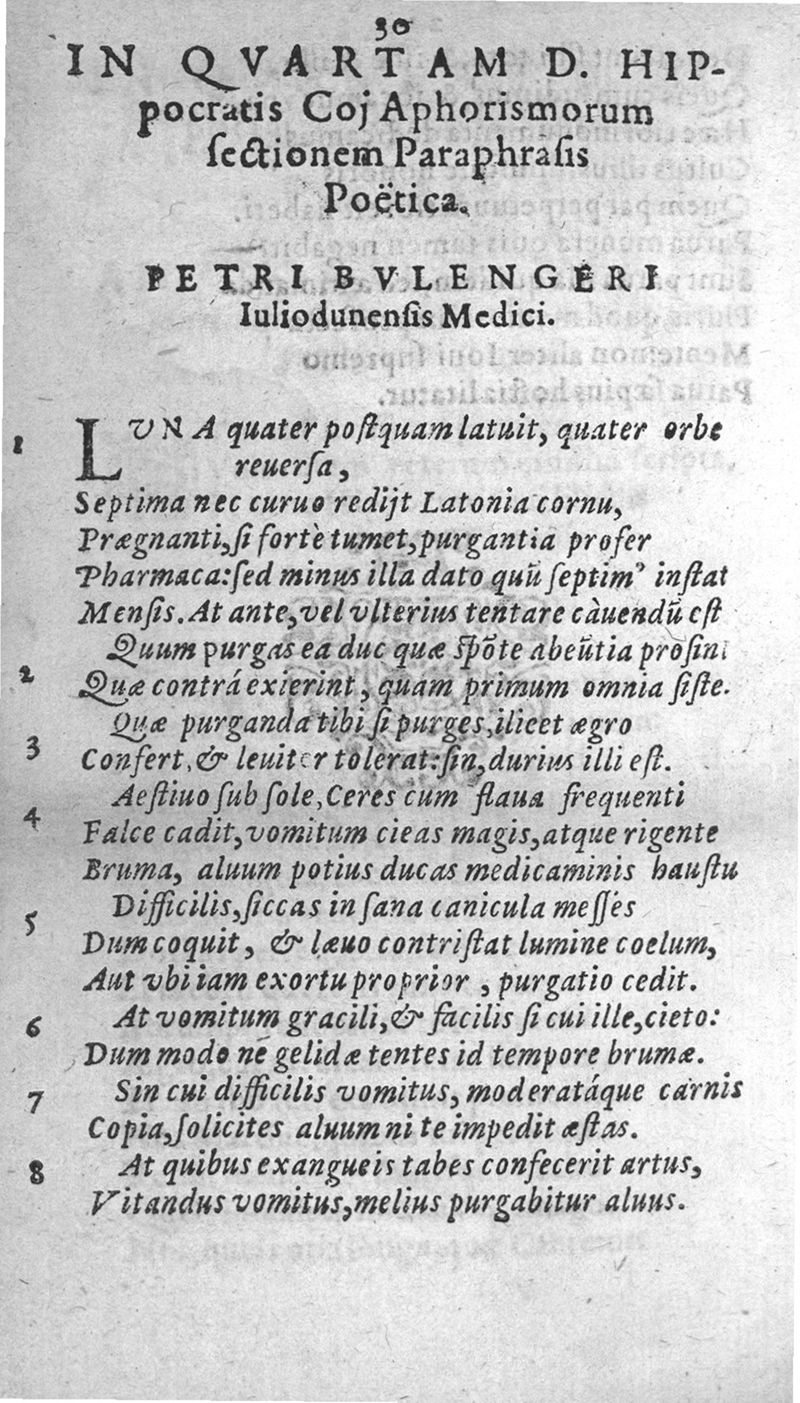 30
IN QVARTAM D. HIP-
pocratis Coj Aphorismorum
ſectionem Paraphraſis
Poëtica.
PETRI BVLENGERI
Iuliodunenſis Medici.
1 LVNA quater poſtquam latuit, quater orbe
reuerſa,
Septima nec curuo redijt Latonia cornu,
Prægnanti, ſi fortè tumet, purgantia profer
Pharmaca: ſed minus illa dato quū ſeptim⁹ inſtat
Menſis. At ante, vel vlterius tentare càuendū eſt
2 Quum purgas ea duc quæ ſpōte abeūtia proſint
Quæ contrá exierint, quam primum omnia ſiſte.
3 Quæ purganda tibi ſi purges, ilicet ægro
Confert, & leuiter tolerat: ſin, durius illi eſt.
4 Aeſtiuo ſub ſole, Ceres cum flaua frequenti
Falce cadit, vomitum cieas magis, atque rigente
Bruma, aluum potius ducas medicaminis hauſtu
5 Difficilis, ſiccas inſana canicula meſſes
Dum coquit, & læuo contriſtat lumine coelum,
Aut vbi iam exortu proprior, purgatio cedit.
6 At vomitum gracili, & facilis ſi cui ille, cieto:
Dum modo né gelidæ tentes id tempore brumæ.
7 Sin cui difficilis vomitus, moderatáque carnis
Copia, ſolicites aluum ni te impedit æſtas.
8 At quibus exangueis tabes confecerit artus,
Vitandus vomitus, melius purgabitur aluus.